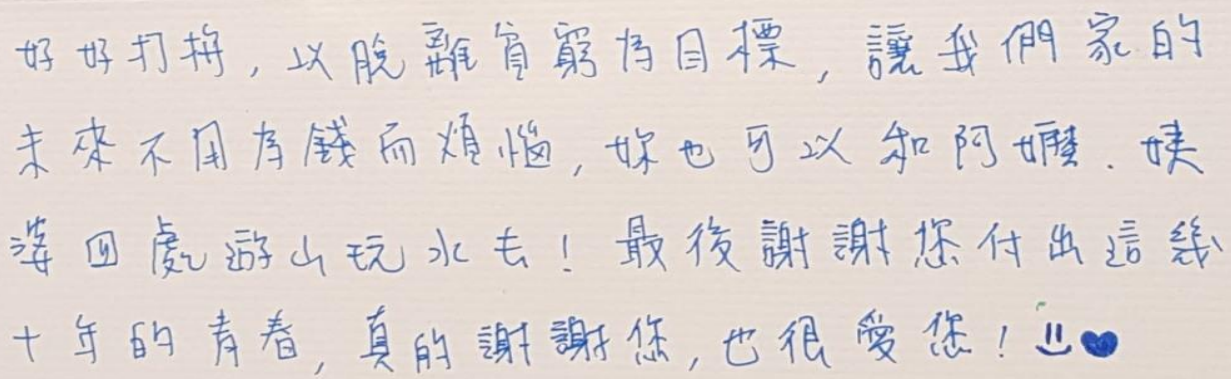 好好打拚，以脫離貧窮為目標，讓我們家的
未來不用為錢而煩惱，妳也可以和阿嬤．姨
婆回處遊山玩水去！最後謝謝您付出這幾
十年的青春，真的謝謝您，也很愛您！